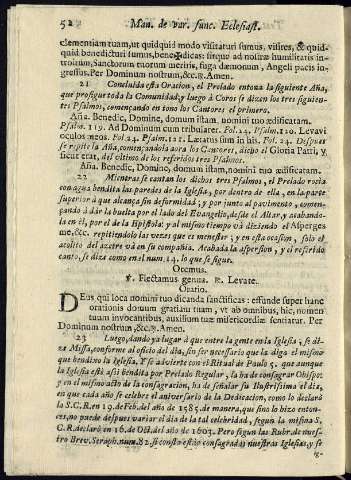 52 Man. de var. func. Eclesiast.
clementiam tuam, ut quidquid modo visitaturi sumus, visites, & quid-
quid benedicturi sumus, bene✠dicas: sitque ad nostræ humilitatis in-
troitum, Sanctorum tuorum meritis, fuga dæmonum, Angeli pacis in-
gressus. Per Dominum nostrum, &c. ℟. Amen.
21 Concluida esta Oracion, el Prelado entona la siguiente Aña,
que prosigue toda la Comunidad; y luego à Coros se dizen los tres siguien-
tes Psalmos, començando en tono los Cantores el primero.
Aña. Benedic, Domine, domum istam, nomini tuo ædificatam.
Psalm. 119. Ad Dominum cum tribularer. Fol. 24. Psalm. 120. Levavi
oculos meos. Fol. 24. Psalm. 121. Lætatus sum in his. Fol. 24. Despues
se repite la Aña, començandola aora los Cantores, dicho el Gloria Patri, y
sicut erat, del ultimo de los referidos tres Psalmos.
Aña. Benedic, Domine, domum istam, nomini tuo ædificatam.
22 Mientras se cantan los dichos tres Psalmos, el Prelado rocia
con agua bendita las paredes de la Iglesia, por dentro de ella, en la parte
superior à que alcança sin deformidad; y por junto al pavimento, començ-
çando à dàr la buelta por el lado del Evangelio, desde el Altar, y acabando-
la en èl, por el de la Epistola: y al mismo tiempo và diziendo el Asperges
me, &c. repitiendolo las vezes que es menester; y en esta ocasion, solo el
acolito del azetre và en su compañia. Acabada la aspersion, y el referido
canto, se dize como en el num. 14. lo que se sigue.
Oremus.
℣. Flectamus genua. ℟. Levate.
Oratio.
DEus qui loca nomini tuo dicanda sanctificas: effunde super hanc
orationis domum gratiam tuam, ut ab omnibus, hic, nomen
tuum invocantibus, auxilium tuæ misericordiæ sentiatur. Per
Dominum nostrum, &c. ℟. Amen.
23 Luego, dando ya lugar à que entre la gente en la Iglesia, se di-
ze Missa, conforme al oficio del dia, sin ser necessario que la diga el mismo
que bendixo la Iglesia. Y se advierte con el Ritual de Paulo 5. que aunque
la Iglesia estè assi bendita por Prelado Regular, la ha de consagrar Obispo;
y en el mismo acto de la consagracion, ha de señalar su Ilustrissima el dia,
en que cada año se celebre el aniversario de la Dedicacion, como lo declarò
la S.C.R. en 19. de Feb. del año de 1585. de manera, que sino lo hizo enton-
ces, no puede despues variar el dia de la tal celebridad, segun la misma S.
C.R. declarò en 16. de Oct. del año de 1603. Pero segun las Rubr. de nues-
tro Brev. Seraph. num. 82. si consta estàn consagradas nuestras Iglesias, y se
ig-